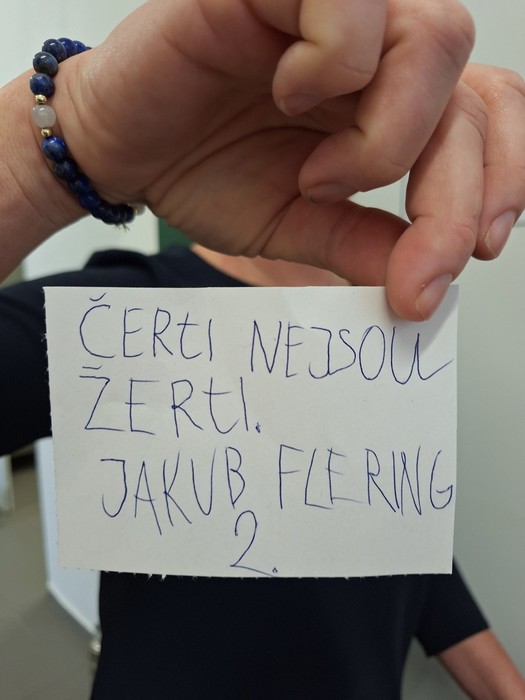 ČERtI NEJSOU
ŽERtI.
JAKUB FLERING
2.